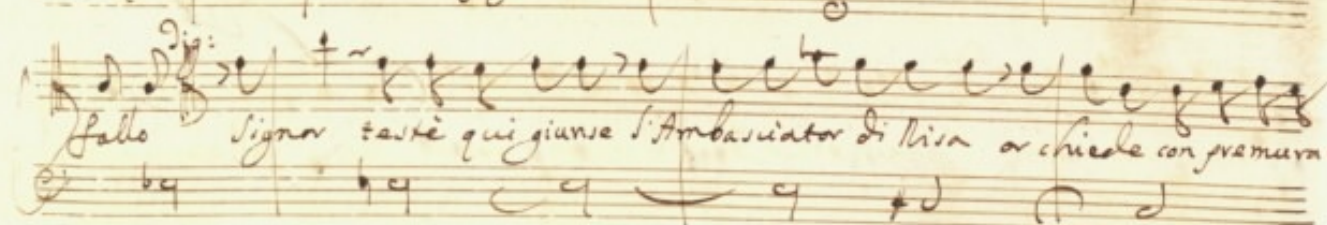 Dig:
fallo Signor testè qui giunse l'Ambasciator di Nisa or chiede con premura